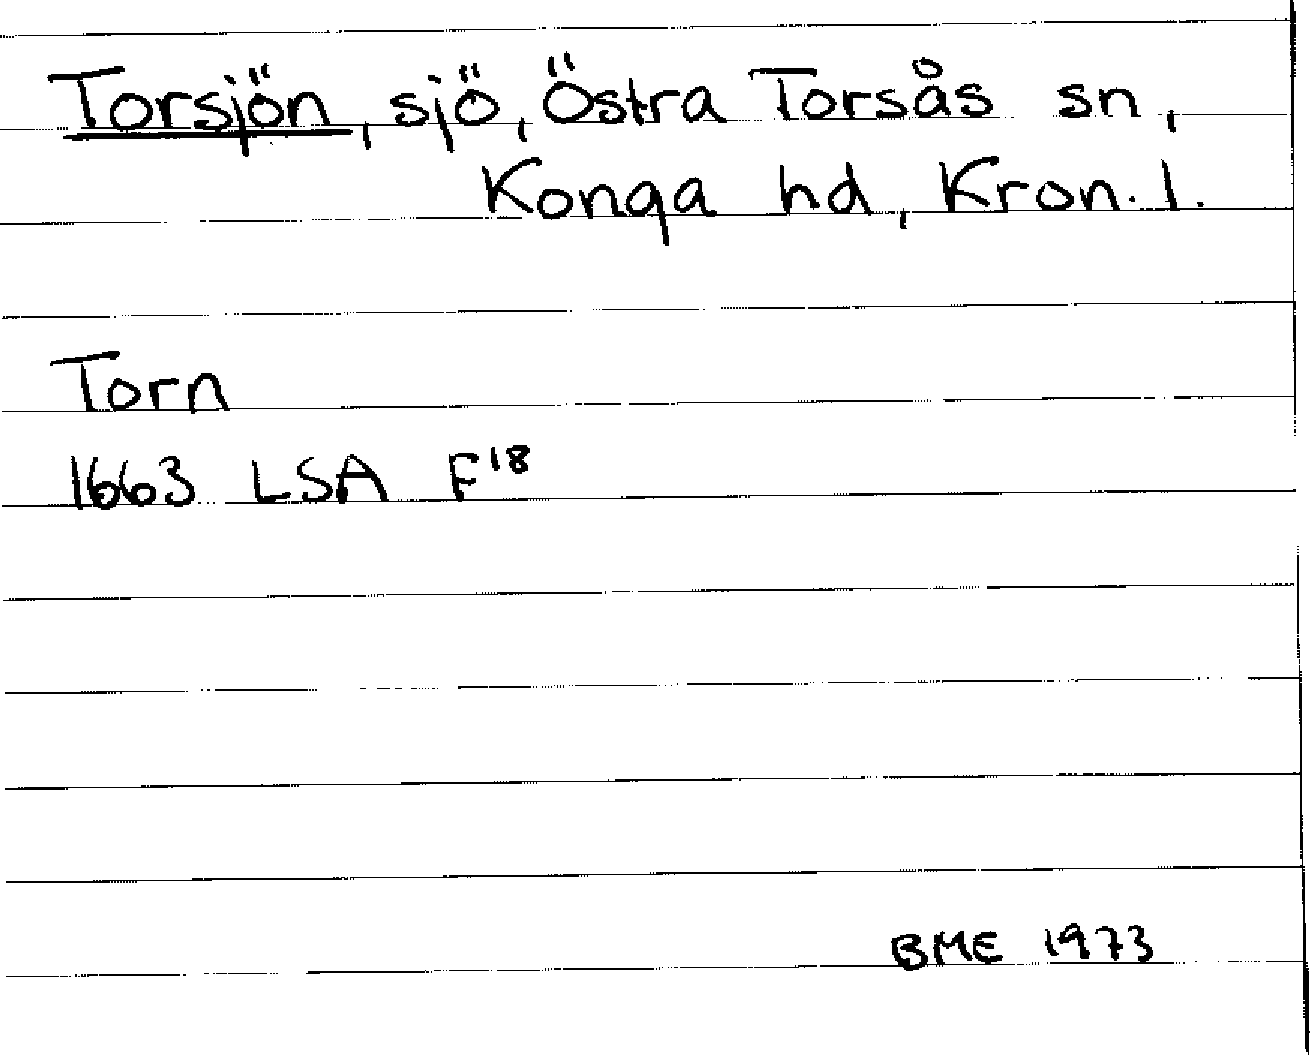 Torsjön, sjö, Östra Torsås sn,
Konga hd, Kron. l.
Torn
1663 LSA F18
BME 1973